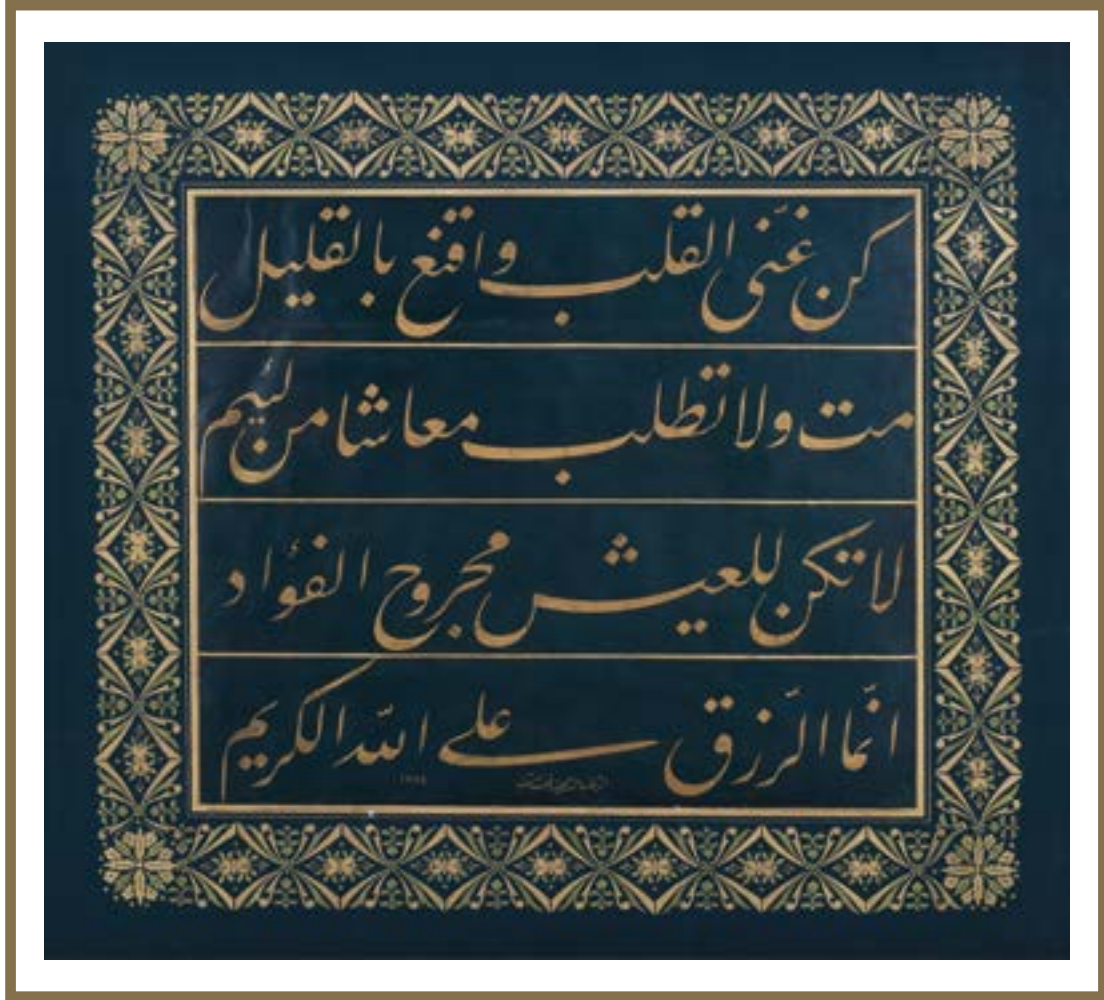 كن غنى القلب واقنع بالقليل
مت ولا تطلب معاشا من لئيم
لا تكن للعيش مجروح الفؤاد
انّما الرّزق على اللّٰه الكريم